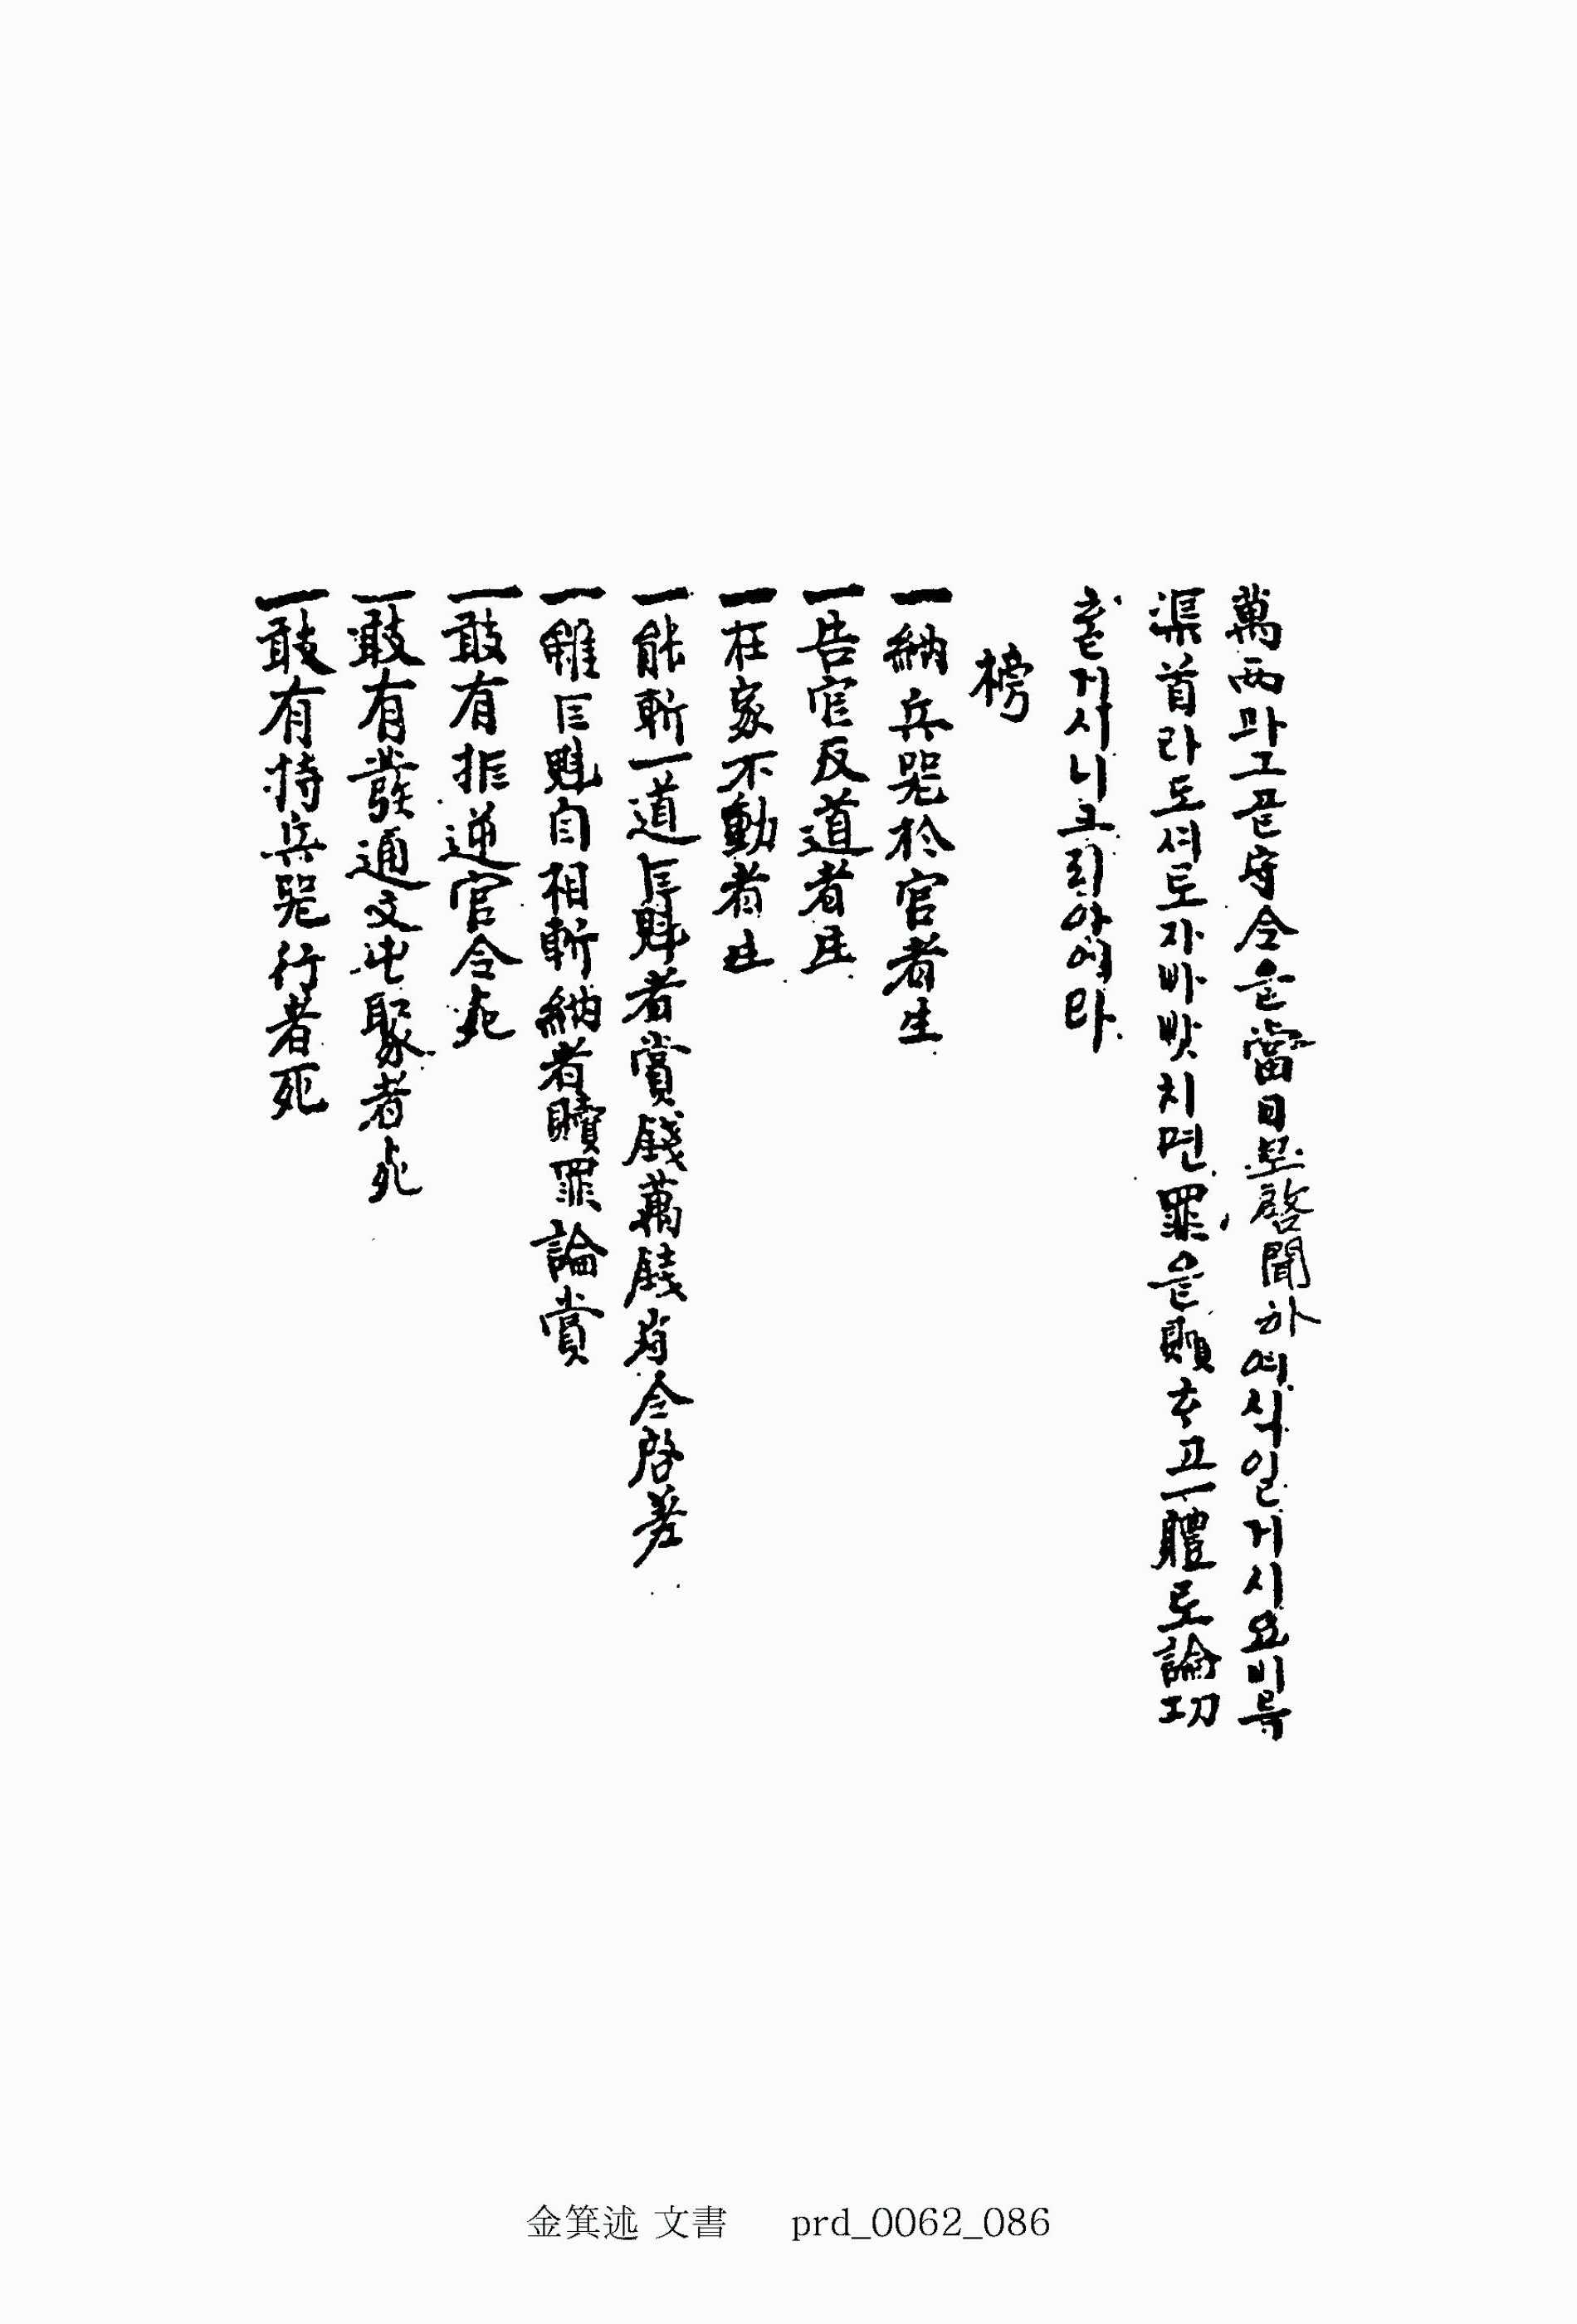 萬兩과 그 끝 守令을 當日로 啓聞하여 식일 거시요 비록
渠首라도 셔로 자바 밧치면 罪을 贖하고 一體로 論功
할 거시니 그리 아여라
榜
一納兵器於官者生
一告官反道者生
一在家不動者生
一能斬一道巨魁者賞錢萬錢守令啓差
一雖巨魁自相斬納者贖罪論賞
一敢有拒逆官令死
一敢有發通文屯聚者死
一敢有持兵器行者死
金箕述 文書 prd_0062_086